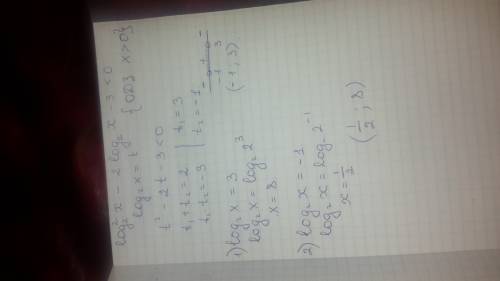 log₂² x - 2 log₂ x - 3 < 0
log₂ x = t { ОДЗ x > 0 }
t² - 2t - 3 < 0
t₁ + t₂ = 2 | t₁ = 3
t₁ t₂ = -3 | t₂ = -1
- + -
-1 3
(-1; 3)
1) log₂ x = 3
log₂ x = log₂ 2³
x = 8.
2) log₂ x = -1
log₂ x = log₂ 2⁻¹
x = 1/2
(1/2 ; 8)